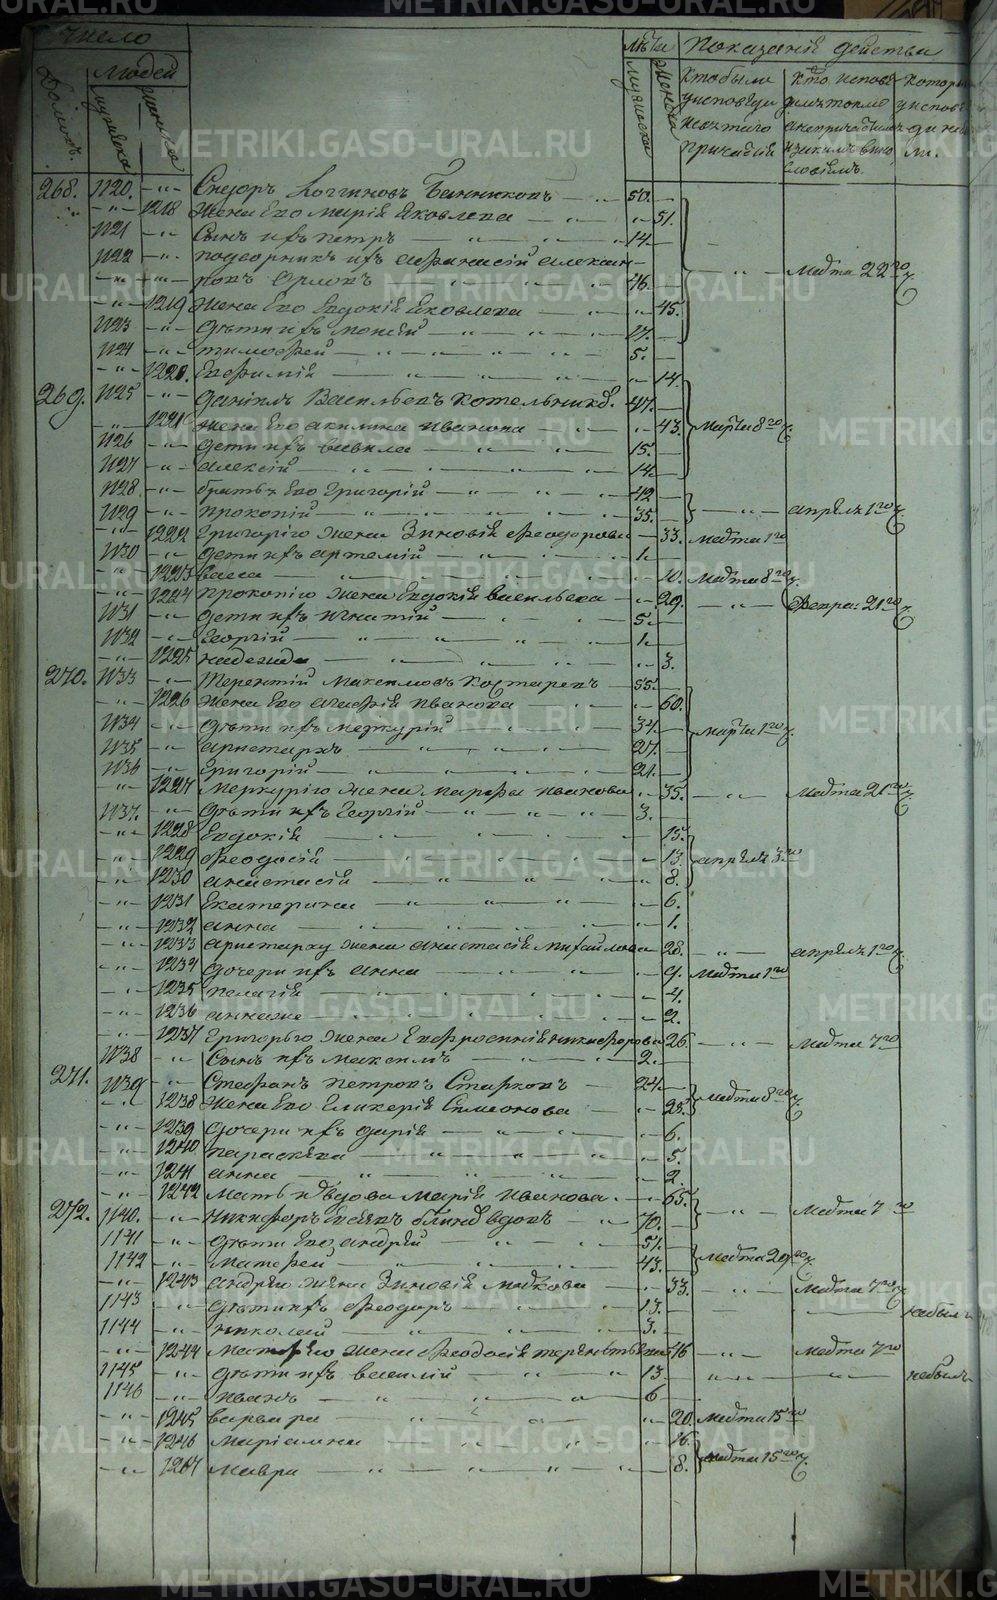 Число
Людей
Лѣта
Показаніѣ действа
Домовъ.
мужеска
женска
мужеска
Женска
Кто были
у исповеди
и св҃ таго
Причастія
Кто испове
а не причастились
Которые
у исповѣ
ди не
ли.
268. 1120. —„— Сидоръ Логгиновъ Банниковъ — 50. —
—„— 1218 Жена Его Марія Яковлева — „— 51.
1121 —„— Сынъ ихъ петръ — 14. —
1122 —„— подворникъ ихъ афанасій алексан-
—„— —„— ровъ Орловъ 46. — —„— Маѳта 22го
—„— 1219 Жена Его Евдокія Яковлева — „— 45.
1123 —„— дѣти ихъ Моисей — 17. —
1124 —„— тимофей — 5. —
—„— 1220. Евфимія — „— 14.
269. 1125 —„— данiилъ Васильевъ Котельник. 47. —
—„— 1221 Жена Его акилина иванова — „— 43. Марта 8го
1126 —„— дети ихъ вавила — 15. —
1127 —„— алексій — 14. —
1128 —„— братья Его Григорій — 42 —
1129 —„— прокопій — 35. — —„— апрѣля 1го
—„— 1222 Григорiго Жена Зиновія Феодорова — 33. Маѳта 1го
1130 —„— дети ихъ артемій — 1. —
—„— 1223 васса — „— 10. Маѳта 8го
—„— 1224 прокопiго Жена Евдокія васильева — 29. —„— Февра: 21го
1131 —„— дети ихъ игнатій — 5. —
1132 —„— Георгій — 1. —
—„— 1225 надежда — „— 3.
270. 1133 —„— Терентій Максимовъ Костаревъ — 55. —
—„— 1226 Жена Его агафія иванова — „— 60.
1134 —„— дѣти ихъ меркурій — 34. — Марта 1го
1135 —„— аристархъ — 27. —
1136 —„— Григорій — 21. —
—„— 1227 Меркурiго Жена Марфа иванова „— 35. —„— Маѳта 21го
1137. —„— дѣти ихъ Георгій — 3. —
—„— 1228 Евдокія — 15.
—„— 1229 Феодосія — „— 13. апрѣля 3го
—„— 1230 анастасія — „— 8.
—„— 1231 Екатерина — „— 6.
—„— 1232 анна — „— 1.
—„— 1233 аристарху Жена анастасія Михайлова 28. —„— апрѣля 1го
—„— 1234 дочери ихъ анна — „— 9. Маѳта 1го
—„— 1235 пелагія — „— 4.
—„— 1236 анна же — „— 2.
—„— 1237 Григорьго Жена Евфросинія никифорова 26 —„— Маѳта 7го
1138 —„— Сынъ ихъ Максимъ — 2. —
271. 1139 —„— Стефанъ петровъ Старковъ — 24. —
—„— 1238 Жена Его Гликерія Симеонова — „— 25. Маѳта 8го
—„— 1239 дочери ихъ дарія — „— 6.
—„— 1240 параскева — „— 5.
—„— 1241 анна — „— 2.
—„— 1242 Мать и вдова Марія иванова. „— 65. —„— Маѳта 7го
272. 1140. —„— никифоръ вдовъ — 70. —
1141 —„— дѣти Его андрей — 51. —
1142 —„— Матфей — 43. — Маѳта 29го
—„— 1243 андрею Жена Зиновія — „— 33. —„— Маѳта 7го
1143 —„— дѣти ихъ Феодоръ — 13. — небылъ
1144 —„— николай — 3. —
—„— 1244 Матфею Жена Феодосія терентьева 46 —„— Маѳта 7го
1145 —„— дѣти ихъ василій — 13 —„— небылъ
1146 —„— иванъ — 6
—„— 1245 варвара — „— 20. Маѳта 15го
—„— 1246 Маріамна — „— 16.
—„— 1247 Мавра — 8. Маѳта 15го
METRIKI.GASO-URAL.RU